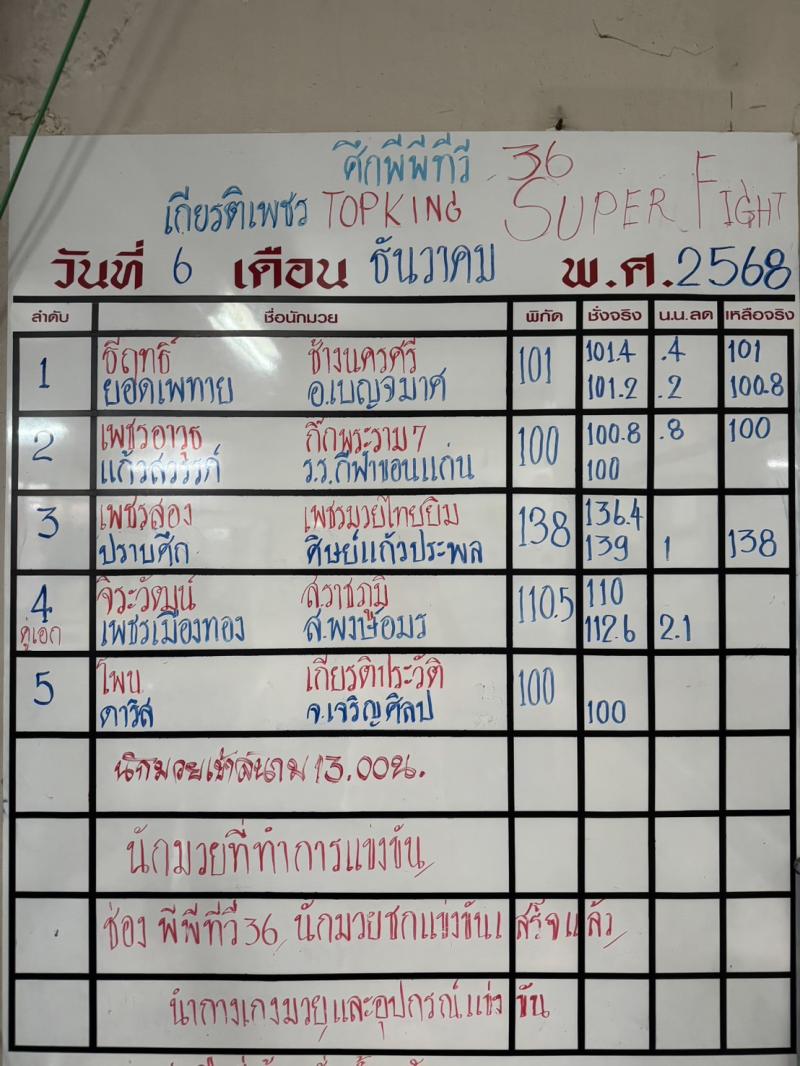 ศึกพีพีทีวี 36
เกียรติเพชร TOPKING SUPER FIGHT
วันที่ 6 เดือน ธันวาคม พ.ศ.2568
ลำดับ ชื่อนักมวย พิกัด ชั่งจริง น.น.ลด เหลือจริง
1 ธีฤทธิ์ ช้างนครศรี 101 101.4 .4 101
ยอดเพทาย อ.เบญจมาศ 101.2 .2 100.8
2 เพชรอาวุธ กิ๊กพระราม 7 100 100.8 .8 100
แก้วสวรรค์ ร.ร.กีฬาขอนแก่น 100
3 เพชรสอง เพชรมวยไทยยิม 138 136.4
ปราบศึก ศิษย์แก้วประพล 139 1 138
4 จิระวัฒน์ ส.ราชภูมิ 110.5 110
คู่เอก เพชรเมืองทอง ส.พงษ์อมร 112.6 2.1
5 โพบ เกียรติประวัติ 100
ดาริส จ.เจริญศิลป 100
นักมวยเข้าสนาม 13.00น.
นักมวยที่ทำการแข่งขัน
ช่อง พีพีทีวี 36 นักมวยชกแข่งขันเสร็จแล้ว
นำกางเกงมวยและอุปกรณ์แข่งขัน